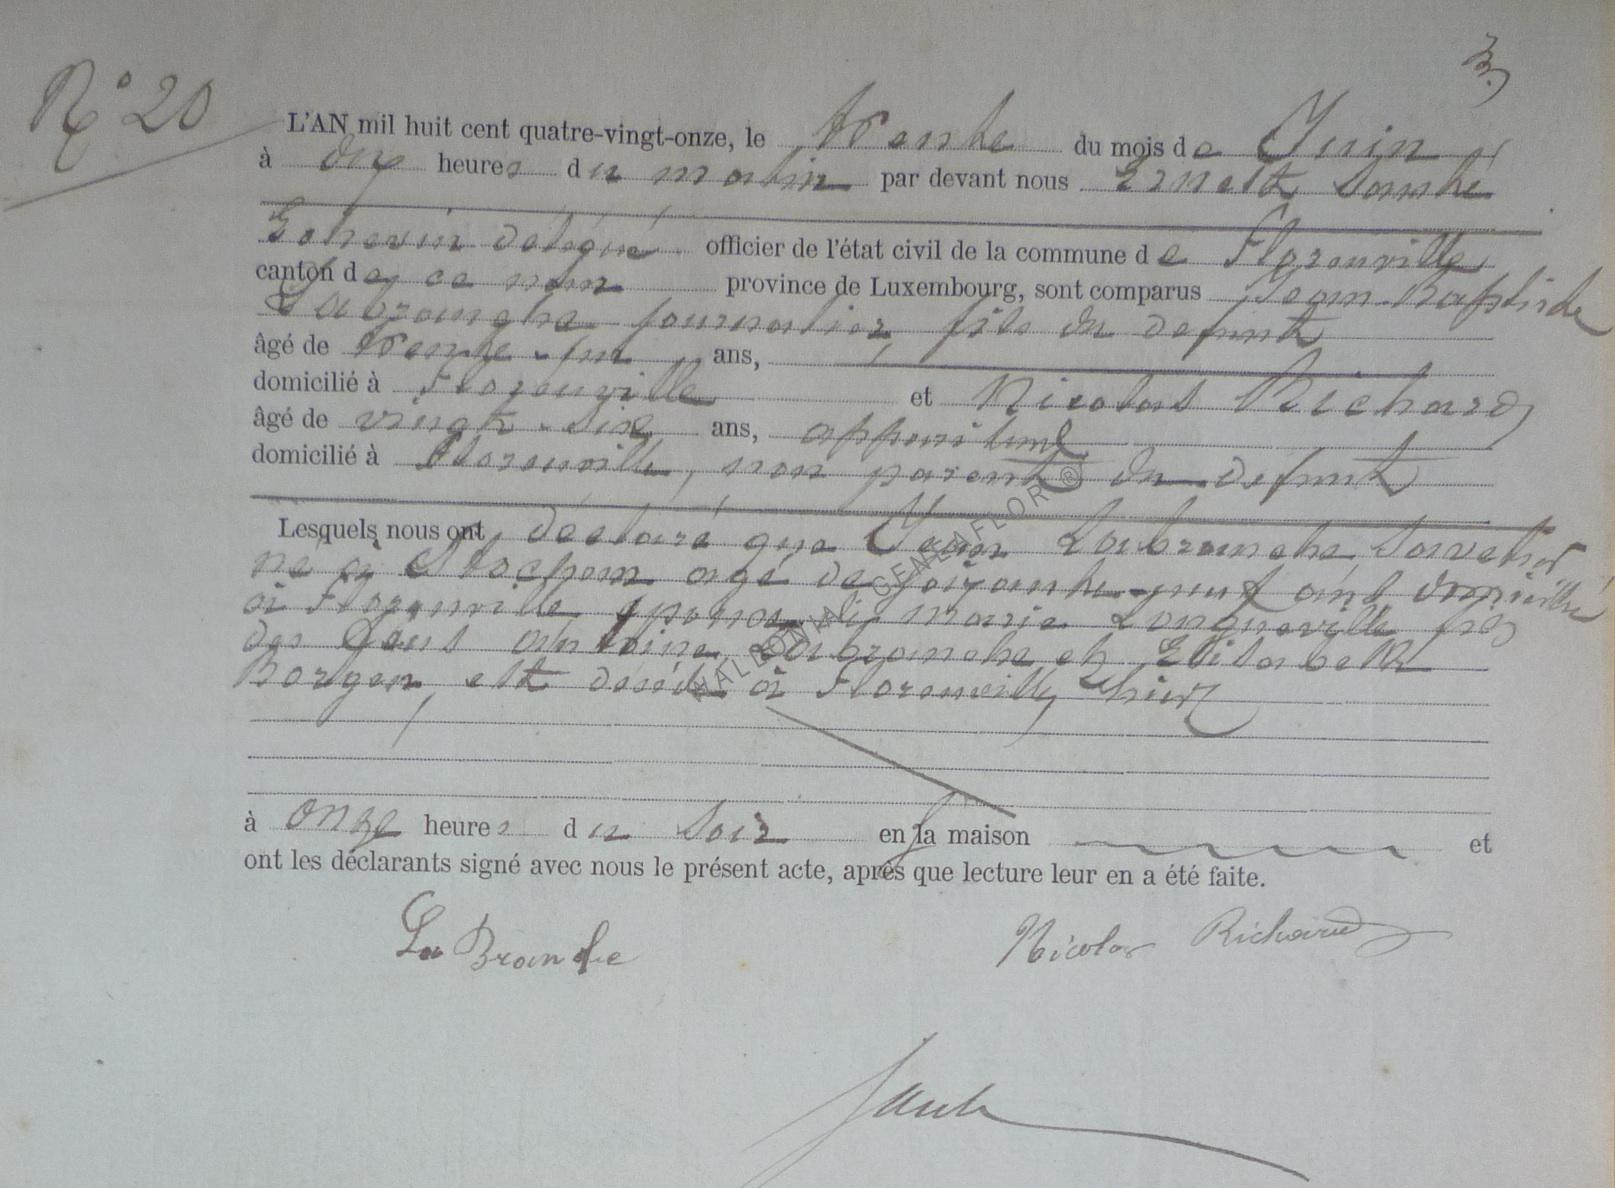 N° 20
L'AN mil huit cent quatre-vingt-onze, le trente du mois de Juin
à onze heures du matin par devant nous Ernest Santé
Echevin délégué officier de l'état civil de la commune de Florenville
canton de ce nom province de Luxembourg, sont comparus Jean-Baptiste
Labranche journalier, fils du defunt
âgé de trente-un ans,
domicilié à Florenville et Nicolas Richard
âgé de vingt-six ans,
domicilié à Florenville, non parent du defunt
Lesquels nous ont déclaré que Jean Labranche savetier
né à agé de soixante-neuf ans domicilié
à Florenville époux de Marie Longueville fils
des Antoine Labranche et Elisabeth
Borgen, est décédé à Florenville, hier
à onze heures du soir en sa maison et
ont les déclarants signé avec nous le présent acte, après que lecture leur en a été faite.
LaBranche Nicolas Richard
WALLONIA GENEAFLOR ®